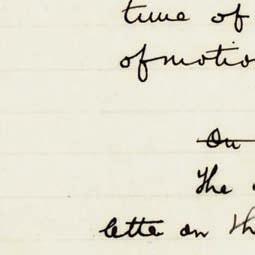 time of
of motio
On
The
letter on th